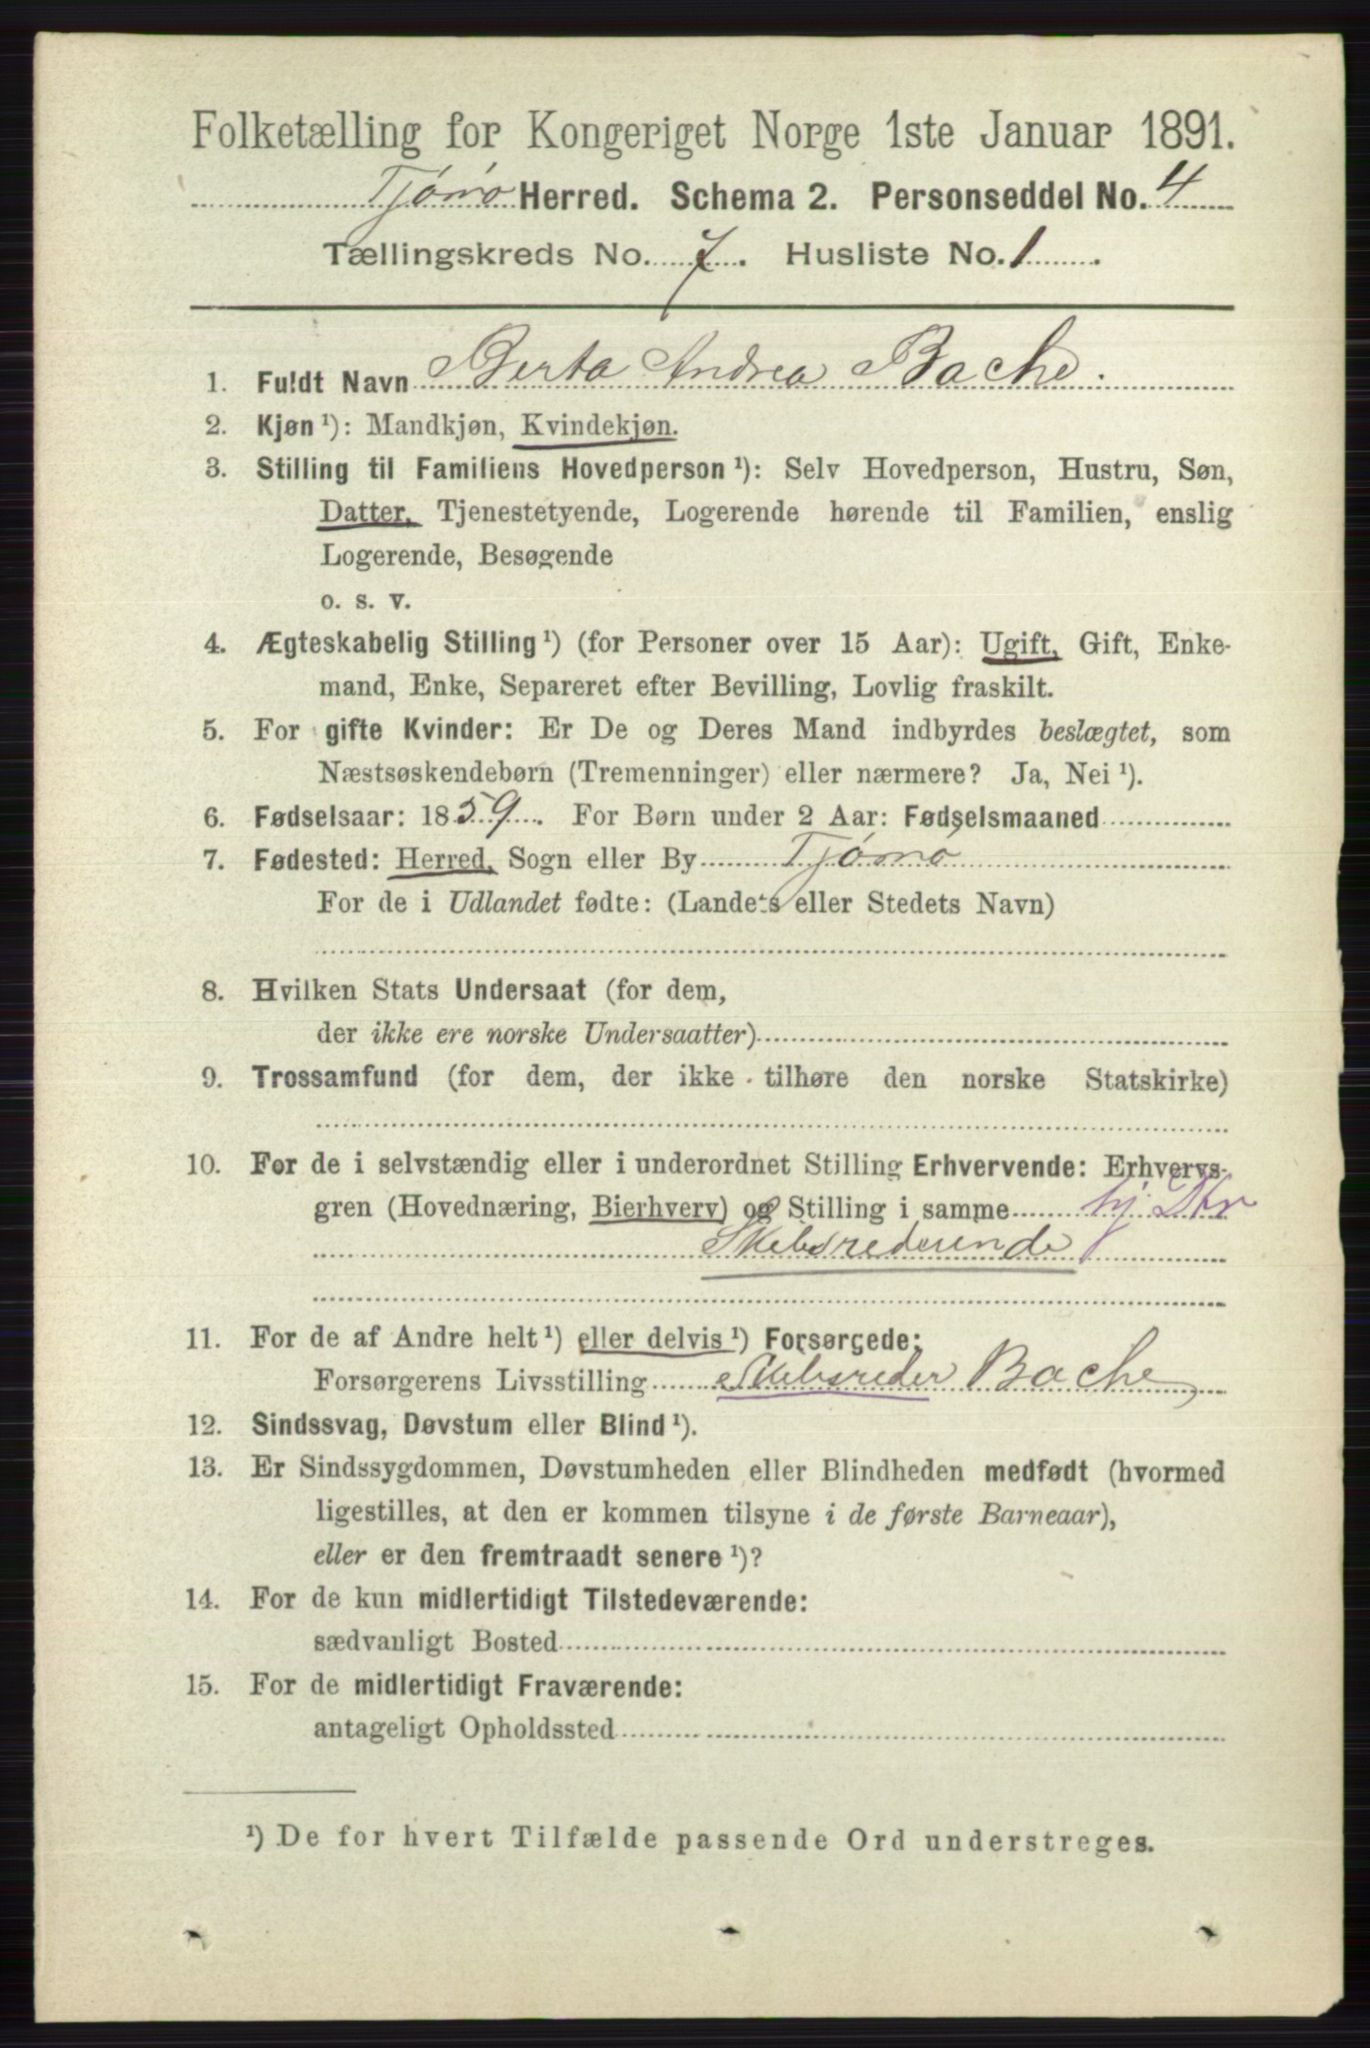 Folketælling for Kongeriget Norge 1ste Januar 1891.
Tjømø Herred. Schema 2. Personseddel No. 4
Tællingskreds No. 7. Husliste No. 1.
1. Fuldt Navn Berta Andrea Bache.
2. Kjøn ¹): Mandkjøn, Kvindekjøn.
3. Stilling til Familiens Hovedperson ¹): Selv Hovedperson, Hustru, Søn,
Datter, Tjenestetyende, Logerende hørende til Familien, enslig
Logerende, Besøgende
o. s. v.
4. Ægteskabelig Stilling ¹) (for Personer over 15 Aar): Ugift, Gift, Enke-
mand, Enke, Separeret efter Bevilling, Lovlig fraskilt.
5. For gifte Kvinder: Er De og Deres Mand indbyrdes beslægtet, som
Næstsøskendebørn (Tremenninger) eller nærmere? Ja, Nei ¹).
6. Fødselsaar: 1859. For Børn under 2 Aar: Fødselsmaaned
7. Fødested: Herred, Sogn eller By Tjømø
For de i Udlandet fødte: (Landets eller Stedets Navn)
8. Hvilken Stats Undersaat (for dem,
der ikke ere norske Undersaatter)
9. Trossamfund (for dem, der ikke tilhøre den norske Statskirke)
10. For de i selvstændig eller i underordnet Stilling Erhvervende: Erhvervs-
gren (Hovednæring, Bierhverv) og Stilling i samme hj. Dtr
Skibsrederende
11. For de af Andre helt ¹) eller delvis ¹) Forsørgede:
Forsørgerens Livsstilling Skibsreder Bache
12. Sindssvag, Døvstum eller Blind ¹).
13. Er Sindssygdommen, Døvstumheden eller Blindheden medfødt (hvormed
ligestilles, at den er kommen tilsyne i de første Barneaar),
eller er den fremtraadt senere ¹)?
14. For de kun midlertidigt Tilstedeværende:
sædvanligt Bosted
15. For de midlertidigt Fraværende:
antageligt Opholdssted
¹) De for hvert Tilfælde passende Ord understreges.